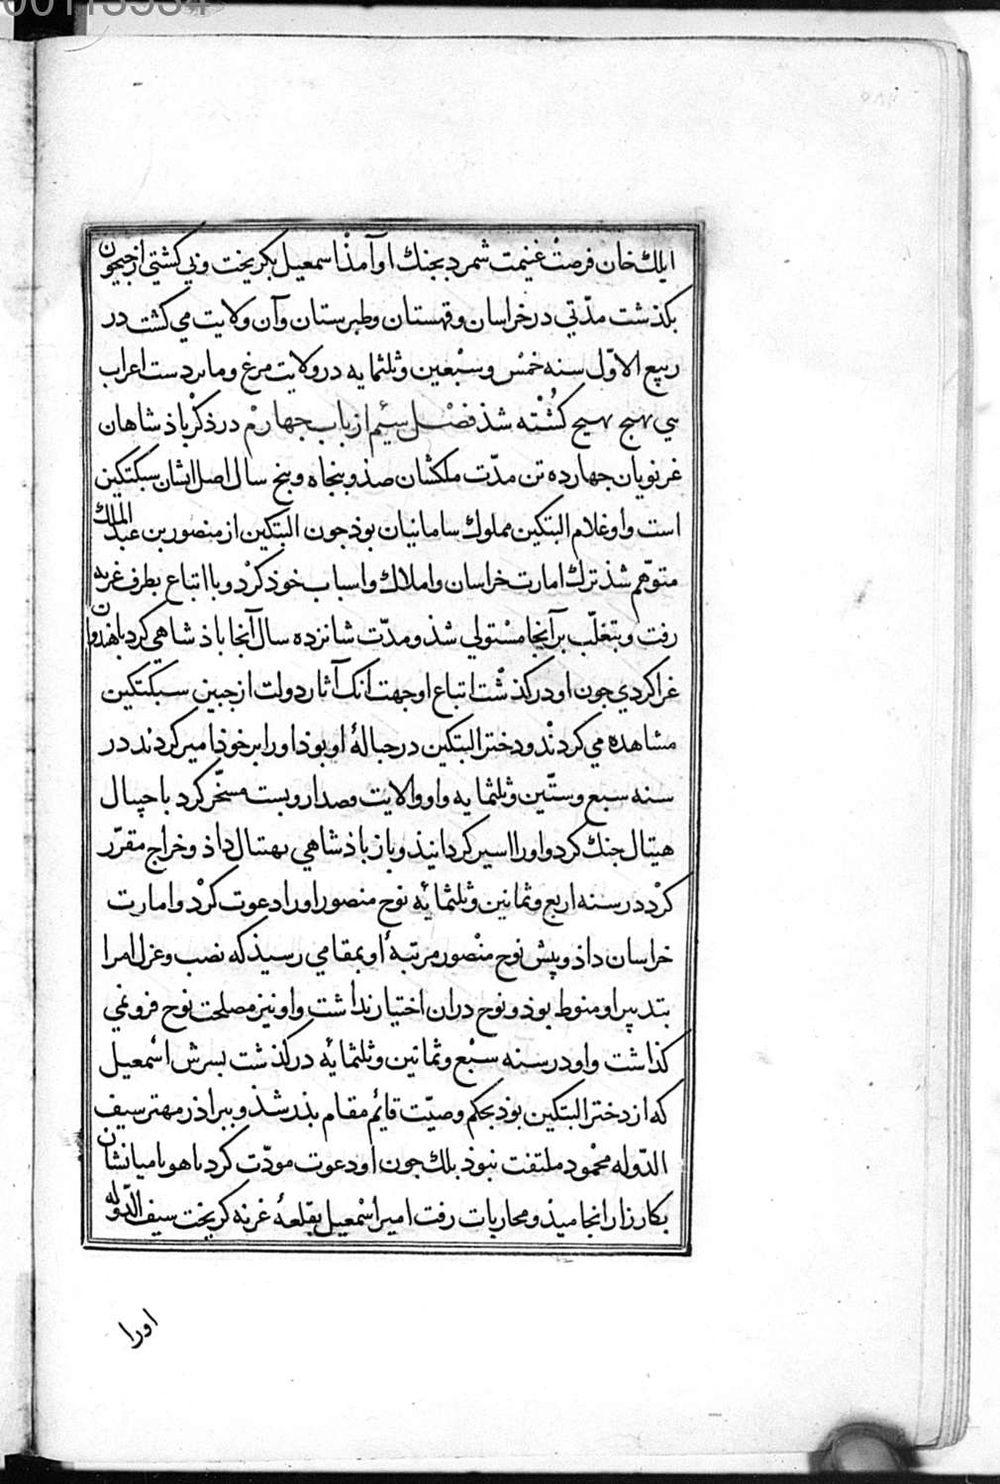 ایلك خان فرصت غنیمت شمرد بجنك او آمذ اسمعیل بکریخت و بی کشتی از جیحون
بکذشت مدّتي در خراسان و قهستان و طبرستان وآن ولایت می کشت در
ربیع الاوّل سنه خمْس وسبْعین وثلثمایه در ولایت مرغ وماىردست اعراب
بي بهیج کُشْته شذ فصْل سیُم از باب جهارم در ذکْر باذ شاهان
غرنویان جهارده تن مدّت ملکشان صذ و بنجاه و بنج سال اصل ایشان سبکتکین
است و او غلام البتکین مملوك سامانیان بوذ جون البتکین از منصور بن عبد الملك
متوّهم شذ ترك امارت خراسان و املاك و اسباب خوذ کرْد و با اتباع بطرف غرنه
رفت و بتغلّب بر آنجا مسْتولي شذ و مدّت شانزده سال آنجا باذ شاهي کرد با هندوان
غرا کردي جون او درکذشْت اتباع او جهت آنك آثار دولت از جبین سبکتکین
مشاهده مي کردنْد و دختر البتکین در حبالهٔ او بوذ او را بر خوذ امیر کردند در
سنه سبع و ستّین و ثلثمایه واو ولایت وصدار و بست مسخّر کرد با جیبال
هیتال جنك کرد و او را اسیر کردانیذ و باز باذ شاهي بهیتال داذ و خراج مقرّر
کرْد در سنه اربع و ثمانین و ثلثمایٔه نوح منصور او را دعوت کرْد و امارت
خراسان داذ و پیش نوح منْصور مرتبهٔ او بمقامي رسیذ که نصب و عزل امرا
بتدبیر او منوط بوذ و نوح دران اختیار نداشت و او نیز مصلحت نوح فرو نمي
کذاشت و او در سنه سبْع و ثمانین و ثلثمایٔه درکذشت بسرش اسْمعیل
که از دختر البتکین بوذ بحکم وصیّت قایٔم مقام بذر شذ و ببراذر مهتر سیف
الدّوله محْمود ملتفت نبوذ بلك جون او دعوت مودّت کرد با هوٮا میانشان
بکارزار انجامیذ و محاربات رفت امیر اسْمعیل بقلعهٔ غرنه کریخت سیف الدّوله
اورا